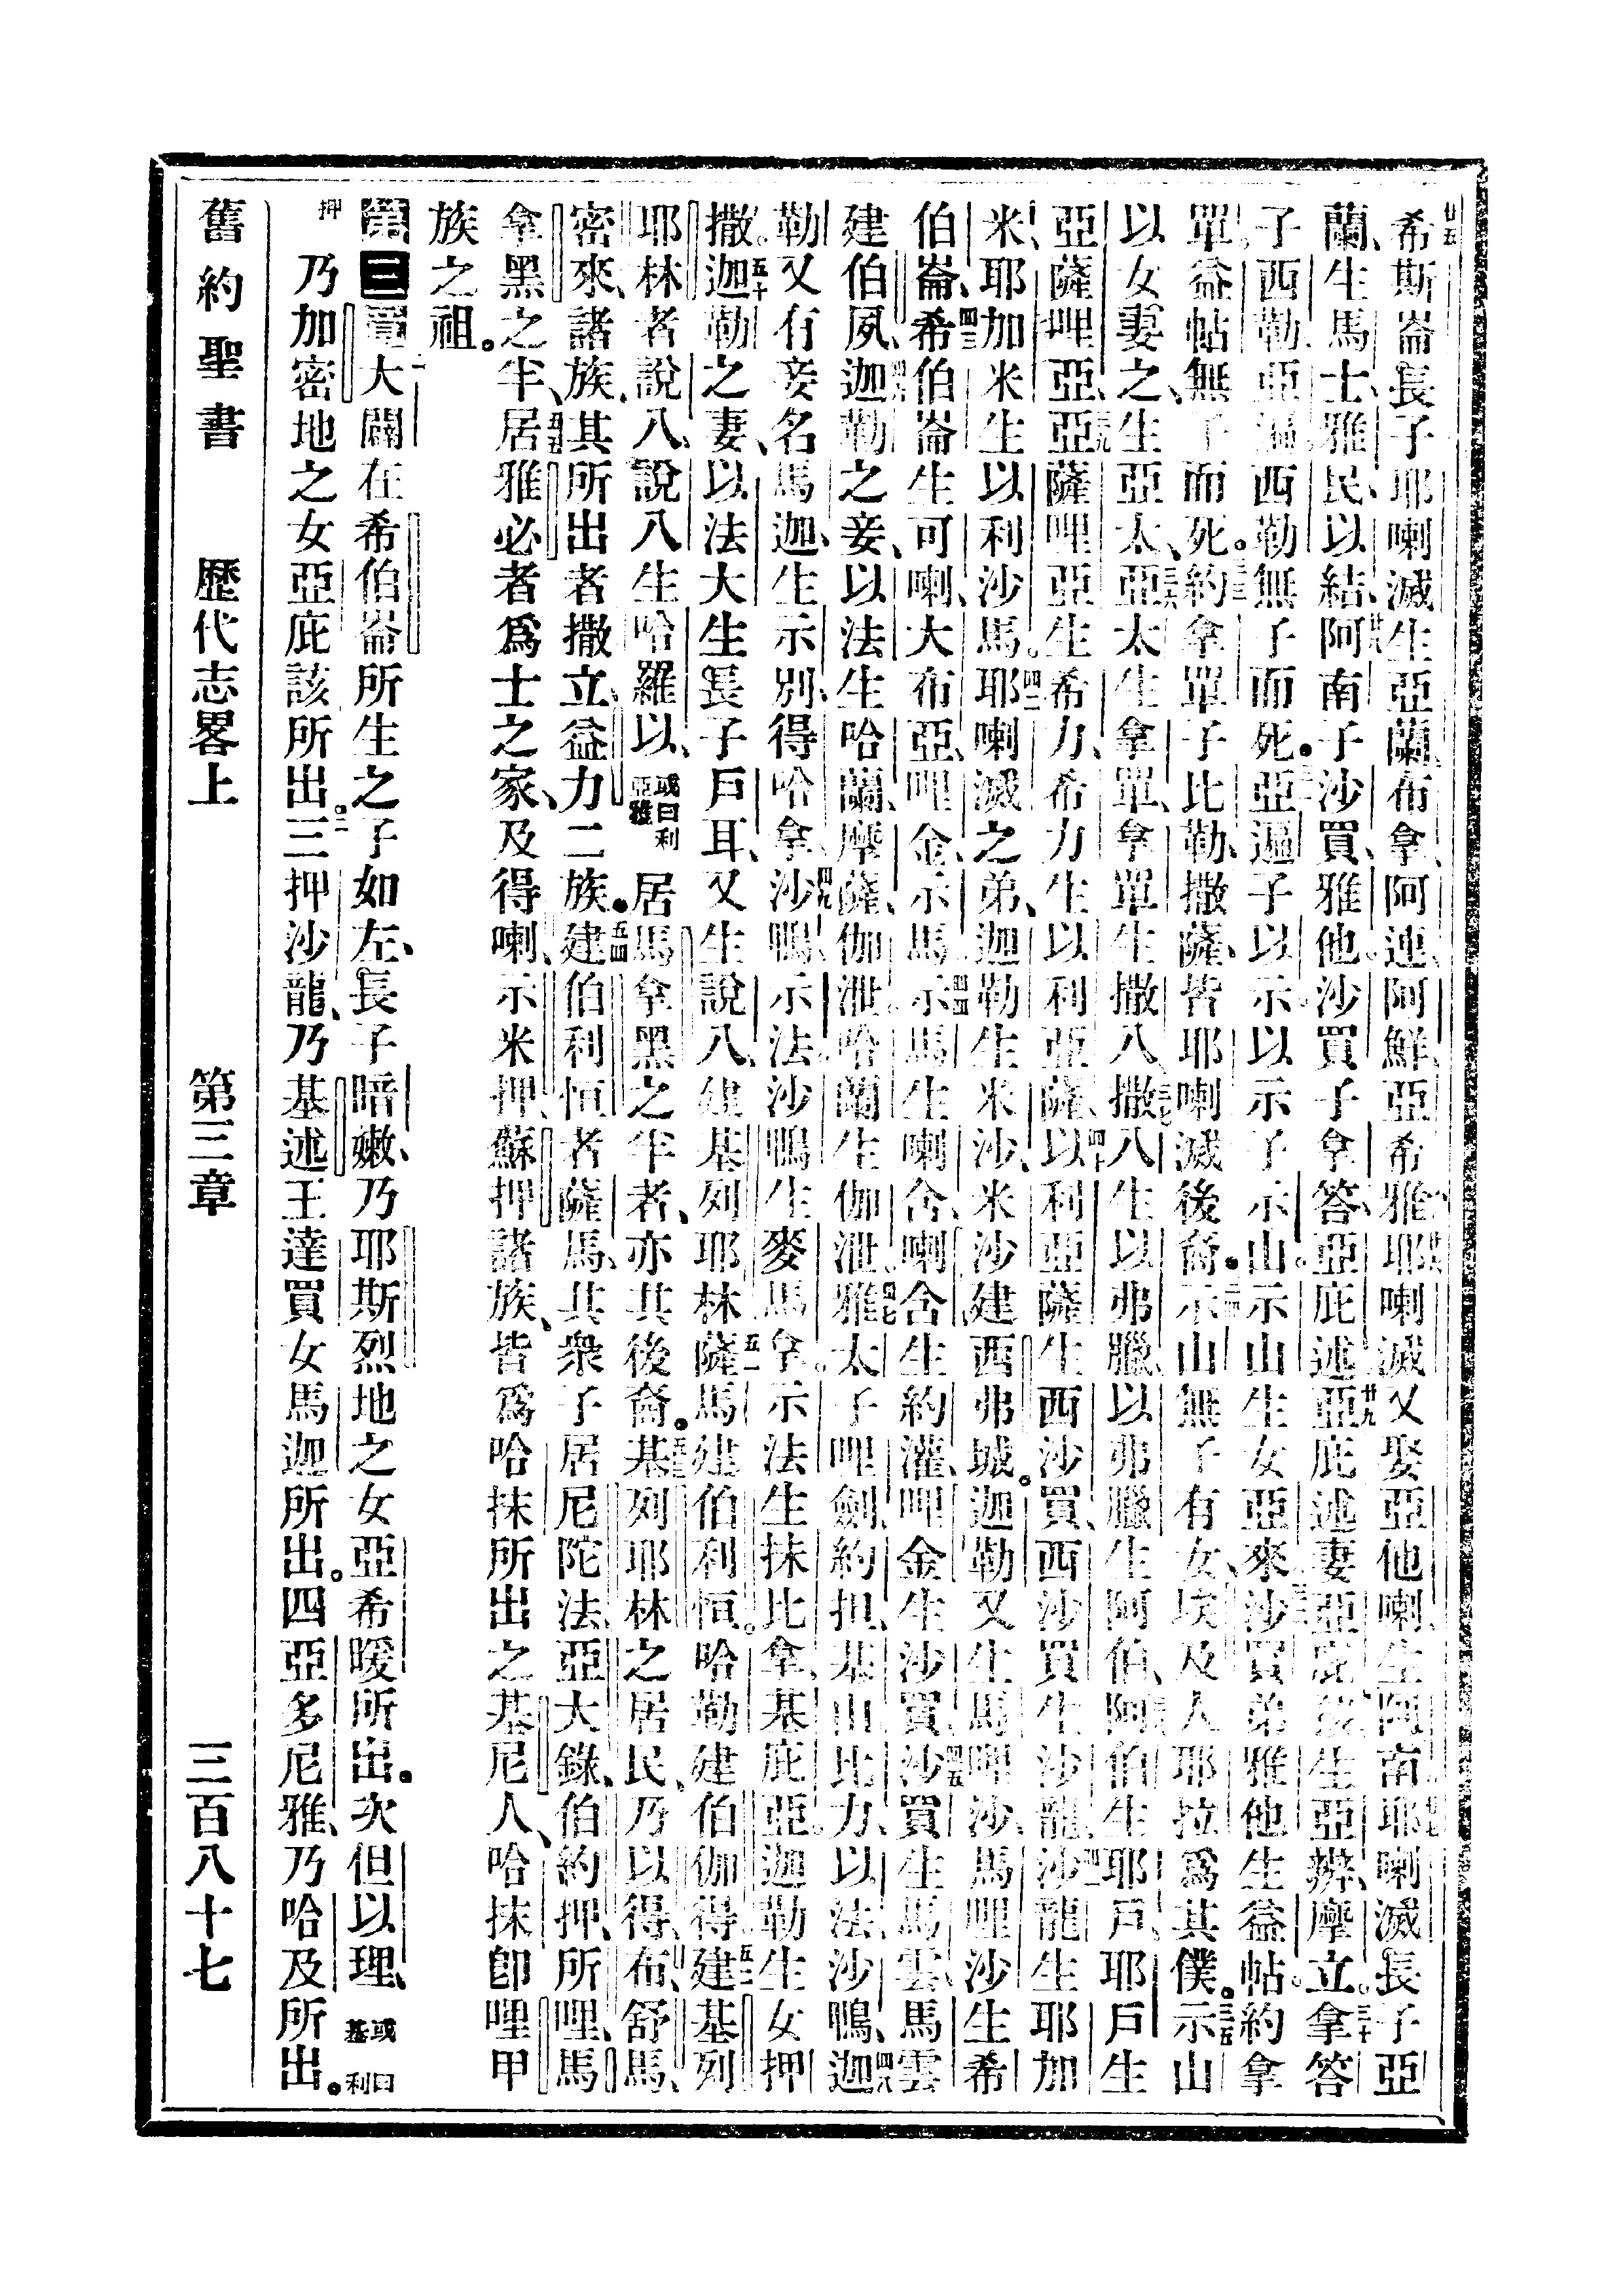 希斯崙長子耶喇滅生亞蘭、布拿、阿連、阿鮮、亞希雅、耶喇滅又娶亞他喇、生阿南、耶喇滅長子亞
蘭、生馬士、雅民、以結、阿南子沙買、雅他、沙買子拿答、亞庇述、亞庇述妻亞庇孩、生亞辨、摩立、拿答
子西勒、亞遍、西勒無子而死。亞遍子以示、以示子示山、示山生女亞來、沙買弟雅他生益帖、約拿
單、益帖無子而死。約拿單子比勒、撒薩、皆耶喇滅後裔。示山無子有女、埃及人耶拉爲其僕。示山
以女妻之、生亞太、亞太生拿單、拿單生撒八、撒八生以弗臘、以弗臘生阿伯、阿伯生耶戶、耶戶生
亞薩哩亞、亞薩哩亞生希力、希力生以利亞薩、以利亞薩生西沙買、西沙買生沙龍、沙龍生耶加
米、耶加米生以利沙馬。耶喇滅之弟、迦勒生米沙、米沙建西弗城。迦勒又生馬哩沙、馬哩沙生希
伯崙、希伯崙生可喇、大布亞、哩金、示馬、示馬生喇含、喇含生約灌、哩金生沙買、沙買生馬雲、馬雲
建伯夙、迦勒之妾、以法生哈蘭、摩薩、伽泄、哈蘭生伽泄、雅太子哩劍、約担、基山、比力、以法、沙鴨、迦
勒又有妾名馬迦、生示別、得哈拿、沙鴨、示法、沙鴨生麥馬拿、示法生抹比拿、基庇亞、迦勒生女押
撒。迦勒之妻、以法大生長子戶耳、又生說八、建基列耶林、薩馬建伯利恒。哈勒建伯伽得、建基列
耶林者說八、說八生哈羅以、或曰利亞雅居馬拿黑之半者、亦其後裔。基列耶林之居民、乃以得、布、舒馬、
密來、諸族、其所出者撒立、益力二族。建伯利恒者薩馬、其衆子居尼陀法、亞大錄、伯約押、所哩、馬
拿黑之半、居雅必者爲士之家、及得喇、示米押、蘇押諸族、皆爲哈抹所出之基尼人、哈抹卽哩甲
族之祖。
第三章大闢在希伯崙所生之子如左、長子暗嫩、乃耶斯烈地之女亞希暖所出。次但以理、或曰基利
押乃加密地之女亞庇該所出。三押沙龍、乃基述王達買女馬迦所出。四亞多尼雅、乃哈及所出。
舊約聖書　歷代志畧上　第三章　三百八十七